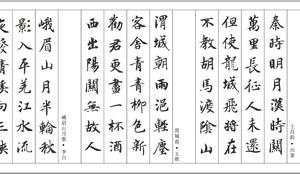 王昌齡·出塞
秦時明月漢時關
萬里長征人未還
但使龍城飛將在
不教胡馬渡陰山
渭城曲·王維
渭城朝雨浥輕塵
客舍青青柳色新
勸君更盡一杯酒
西出陽關無故人
峨眉山月歌·李白
峨眉山月半輪秋
影入平羌江水流
夜發清溪向三峽